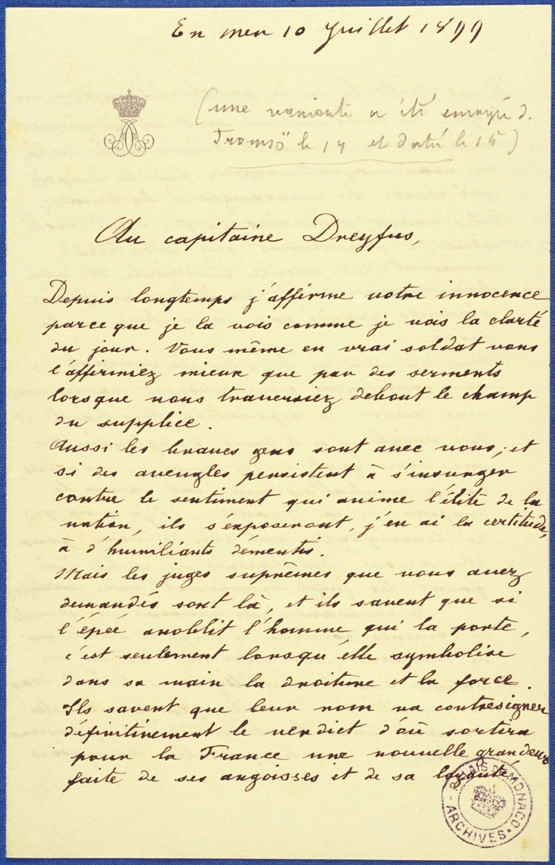 En mer 10 Juillet 1899
(une variante a été envoyée d.
Tromsö le 14 et daté le 15)
Au capitaine Dreyfus,
Depuis longtemps j'affirme votre innocence
parce que je la vois comme je vois la clarté
du jour. Vous même en vrai soldat vous
l'affirmiez mieux que par des serments
lorsque vous traversiez debout le champ
du supplice.
Aussi les braves gens sont avec vous; et
si des aveugles persistent à s'insurger
contre le sentiment qui anime l'élite de la
nation, ils s'exposeront, j'en ai la certitude,
à d'humiliants démentis.
Mais les juges suprêmes que vous avez
demandés sont là, et ils savent que si
l'épée anoblit l'homme qui la porte,
c'est seulement lorsqu'elle symbolise
dans sa main la droiture et la force.
Ils savent que leur nom va contresigner
définitivement le verdict d'où sortira
pour la France une nouvelle grandeur
faite de ses angoisses et de sa loyauté
PALAIS DE MONACO
ARCHIVES